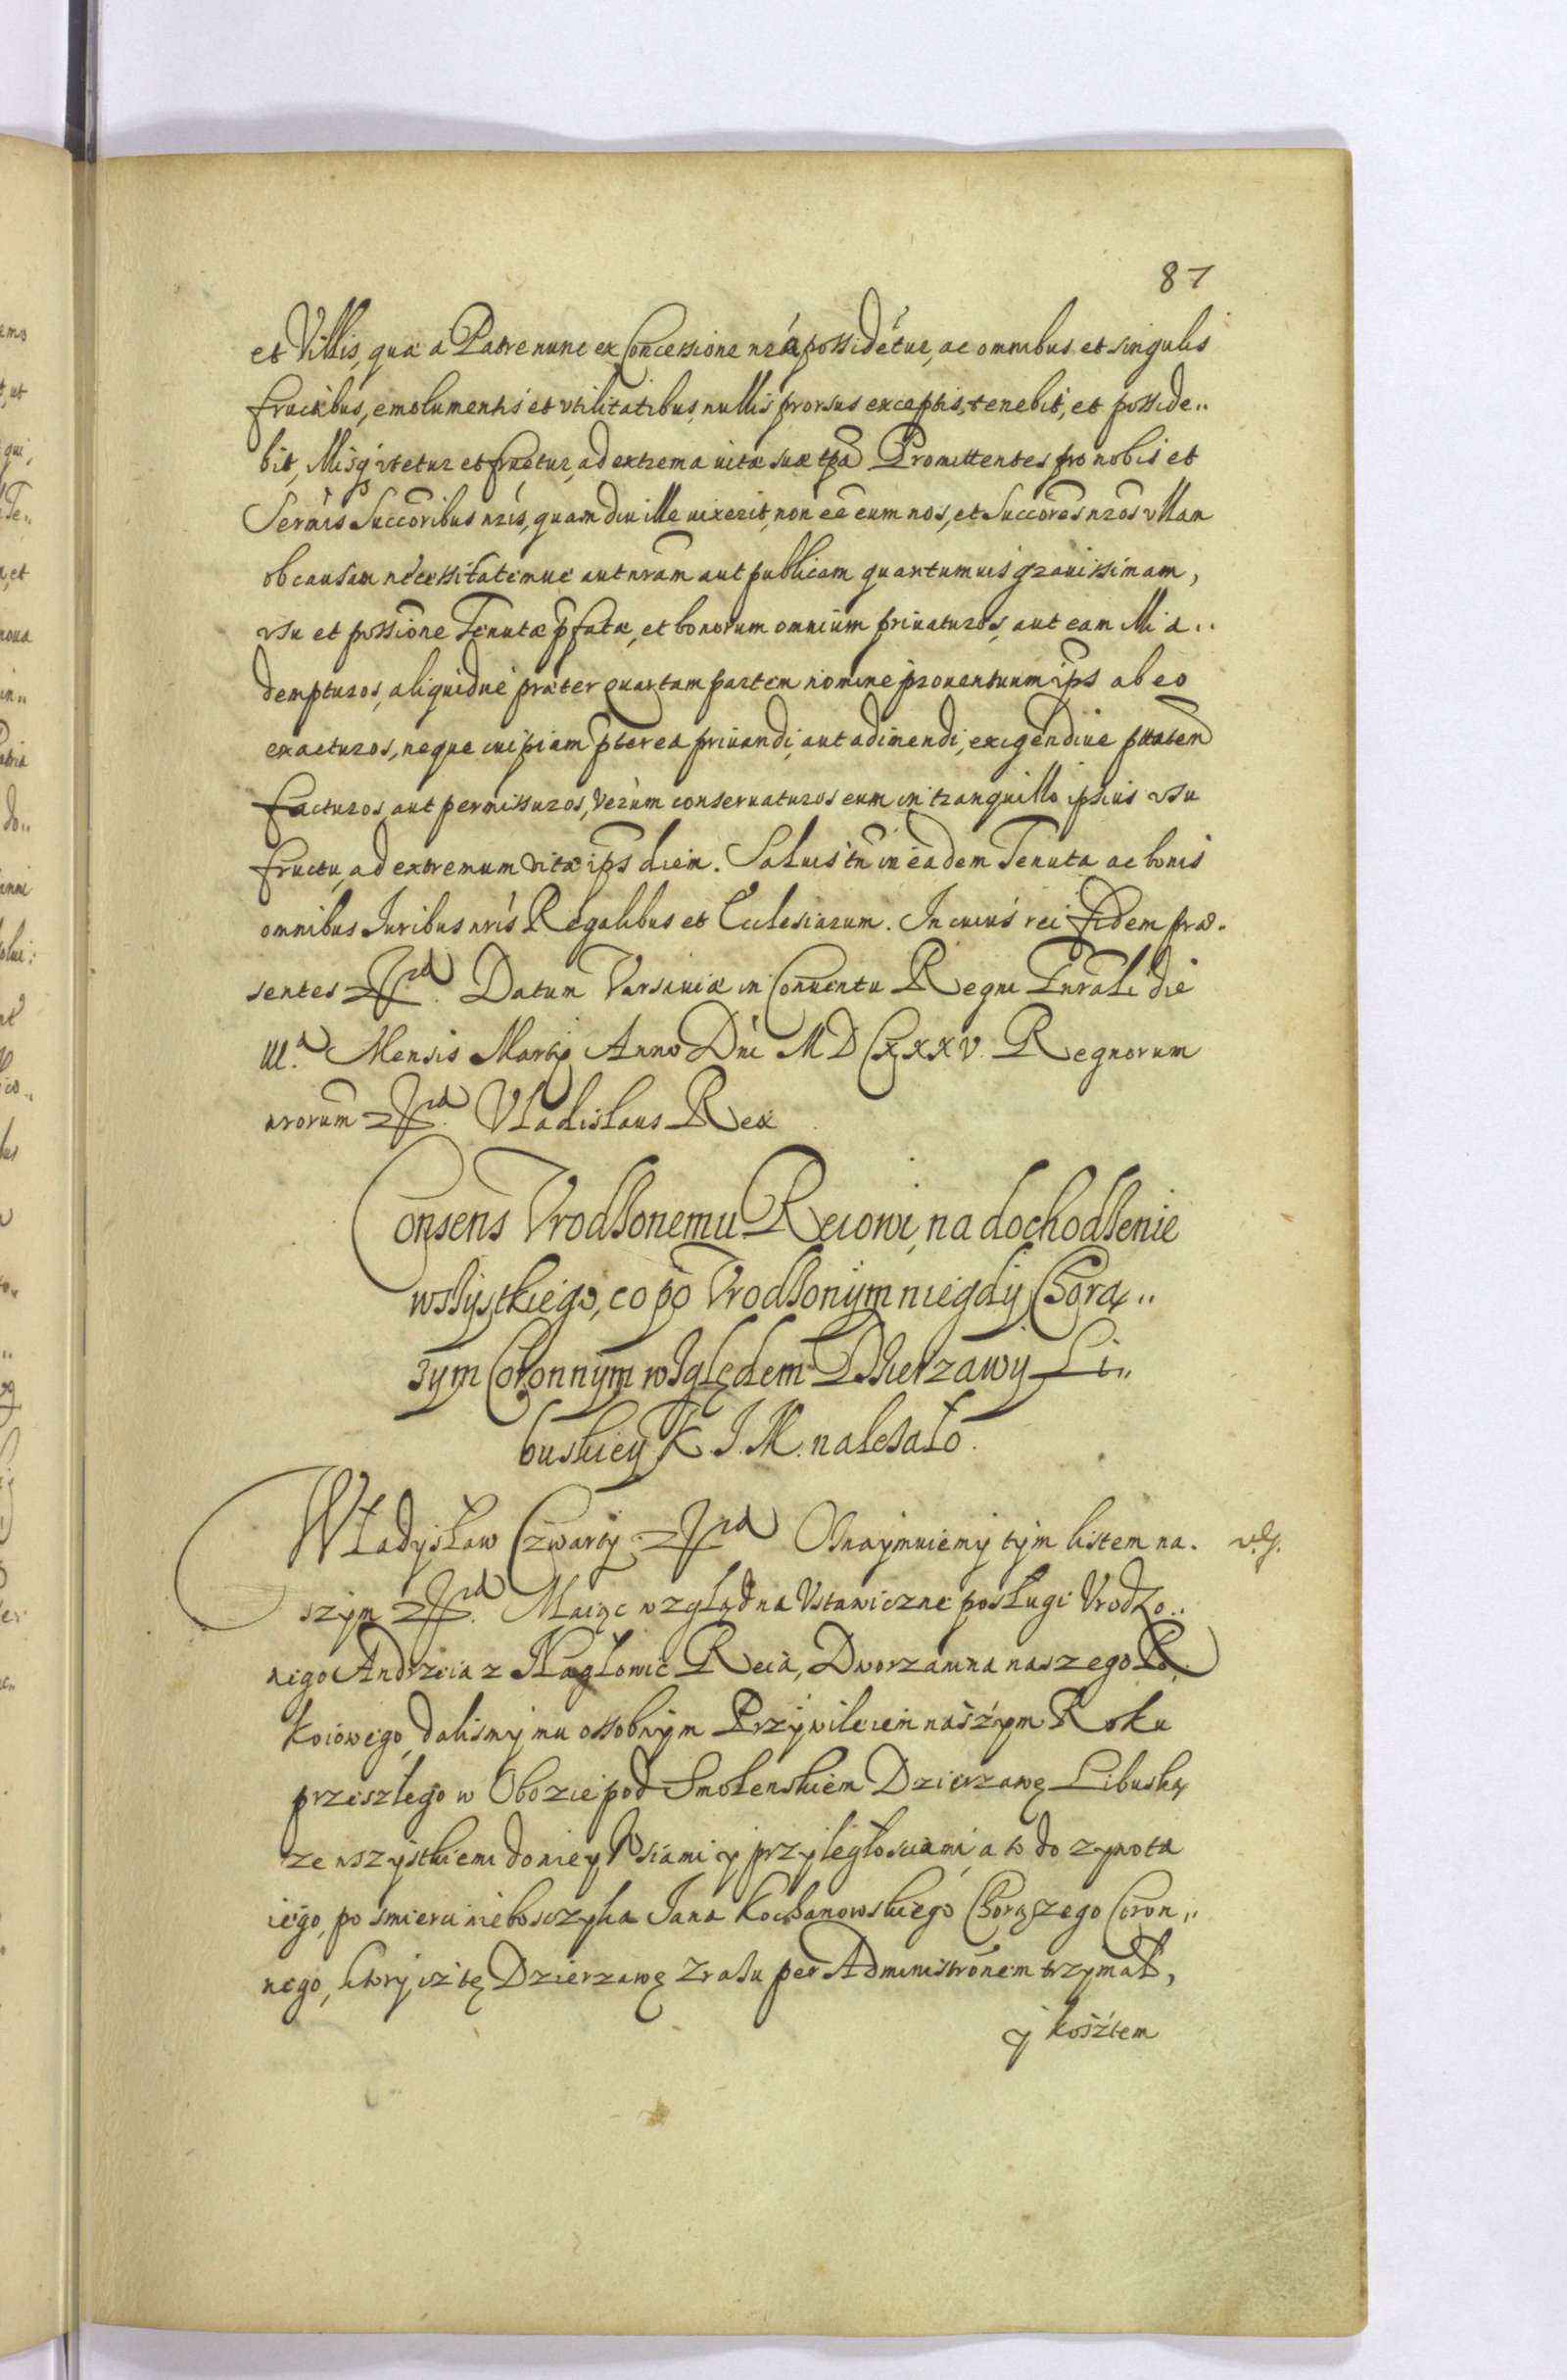 87
et Villis, quæ a Patre nunc ex Concessione nrá possidétur, ac omnibus et singulis
fructibus, emolumentis et vtilitatibus, nullis prorsus exceptis, tenebit, et posside„
bit, illisq̃ vtetur et fruetur, ad extrema uitæ suæ tp̃a Promittentes pro nobis et
Sermis Succoribus nris, quamdiu ille uixerit, non eẽ eum nos, et Succores nros vllam
ob causam necessitatemue aut nram aut publicam quantumuis grauissimam,
vsu et possione Tenutæ pfatæ, et bonorum omnium priuaturos, aut eam illi a„
dempturos, aliquidue præter quartam partem nomine prouentuum ips ab eo
exacturos, neque cuipiam pterea priuandi, aut adimendi, exigendiue ptatem
facturos, aut permissuros, Verum conseruaturos eum in tranquillo ipsius vsu
fructu, ad extremum vitæ ips diem. Saluis tn in eadem Tenuta ac bonis
omnibus Iuribus nris Regalibus et Ecclesiarum. In cuius rei fidem præ.
sentes &ca. Datum Varsauiæ in Conuentu Regni Gnrali die
III.a Mensis Martij Anno Dni MDCXXXV. Regnorum
nrorum &ca. Vladislaus Rex
Consens Vrodzonemu Reiowi, na dochodzenie
wszystkiego, co po Vrodzonym niegdy Chorą„
zym Coronnym względem Dzierzawy Li„
buskiey K. I. M. nalezało.
Władysław Czwarty &ca Oznaymuiemy tym listem na.
v.g.
szym &ca. Maiąc wzgląd na Vstawiczne posługi Vrodzo„
nego Andrzeia z Nagłowic Reia, Dworzanina naszego Po„
koiowego, dalismy mu ossobnym Przywileiem naszym Roku
przeszłego w Obozie pod Smolenskiem Dzierzawę Libuską
ze wszystkiemi do niey Wsiami y przyległosciami, a to do zywota
iego, po smierci nieboszczyka Iana Kochanowskiego Chorązego Coron„
nego, ktory iz tę Dzierzawę zrazu per Administronem trzymał,
y kosztem